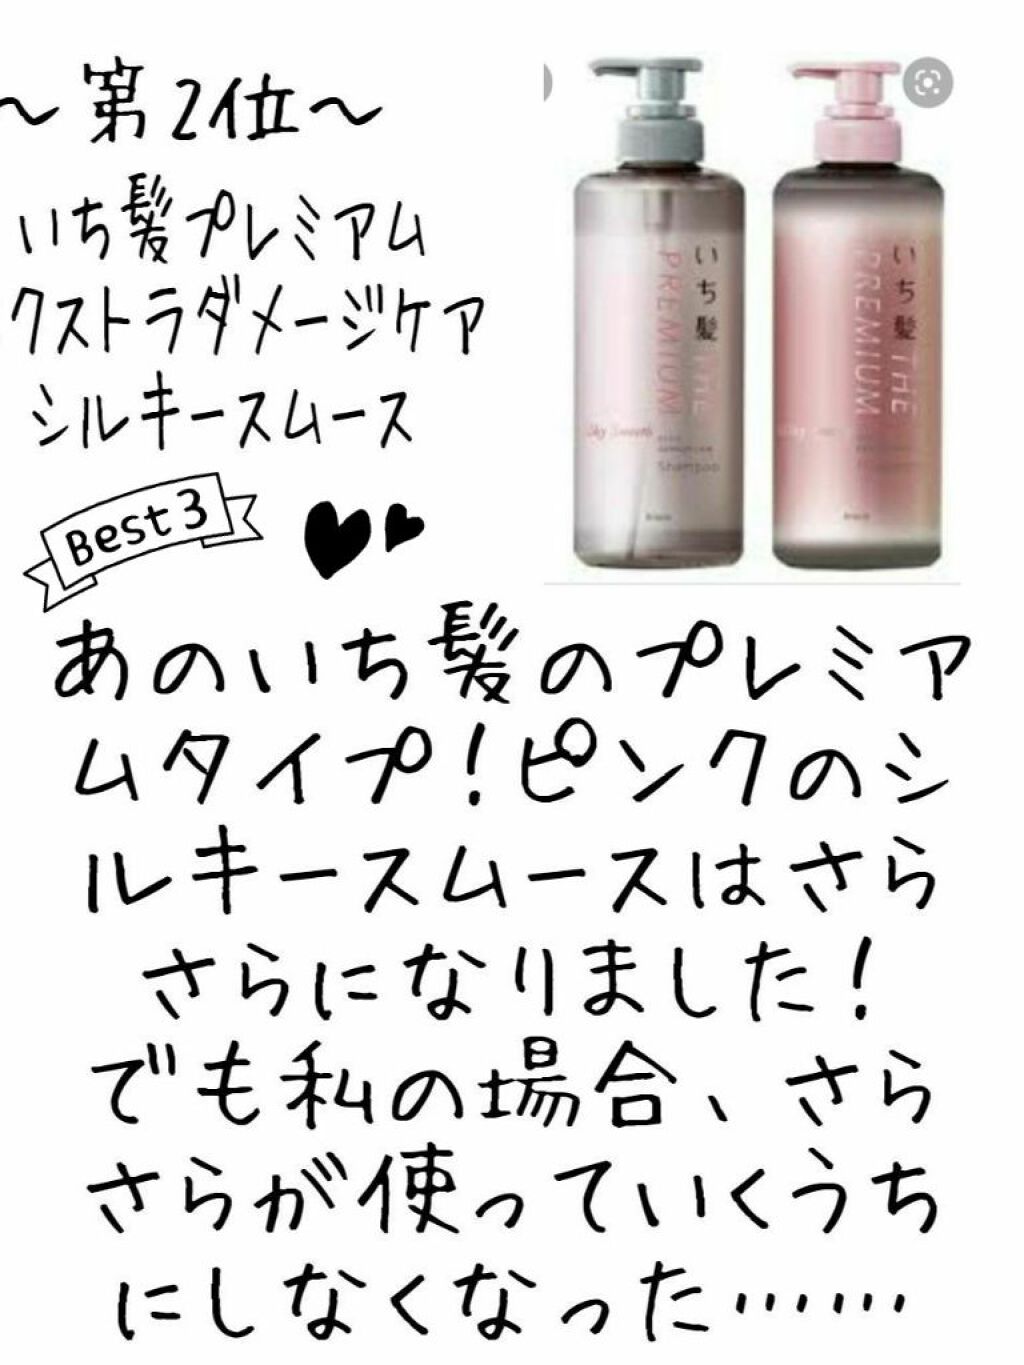 ～第2位～
いち髪プレミアム
クストラダメージケア
シルキースムース
Best3
いち髪
THE
PREMIUM
Silky Smooth
Shampoo
いち髪
THE
PREMIUM
あのいち髪のプレミア
ムタイプ!ピンクのシ
ルキースムースはさら
さらになりました!
でも私の場合、さら
さらが使っていくうち
にしなくなった……